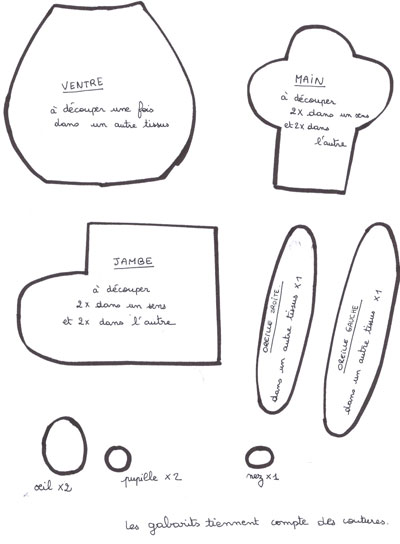 VENTRE
à découper une fois
dans un autre tissus
MAIN
à découper
2x dans un sens
et 2x dans
l'autre
JAMBE
à découper
2x dans un sens
et 2x dans l'autre
OREILLE DROITE
dans un autre tissus x1
OREILLE GAUCHE
dans un autre tissus x1
œil x2
pupille x2
nez x1
Les gabarits tiennent compte des coutures.